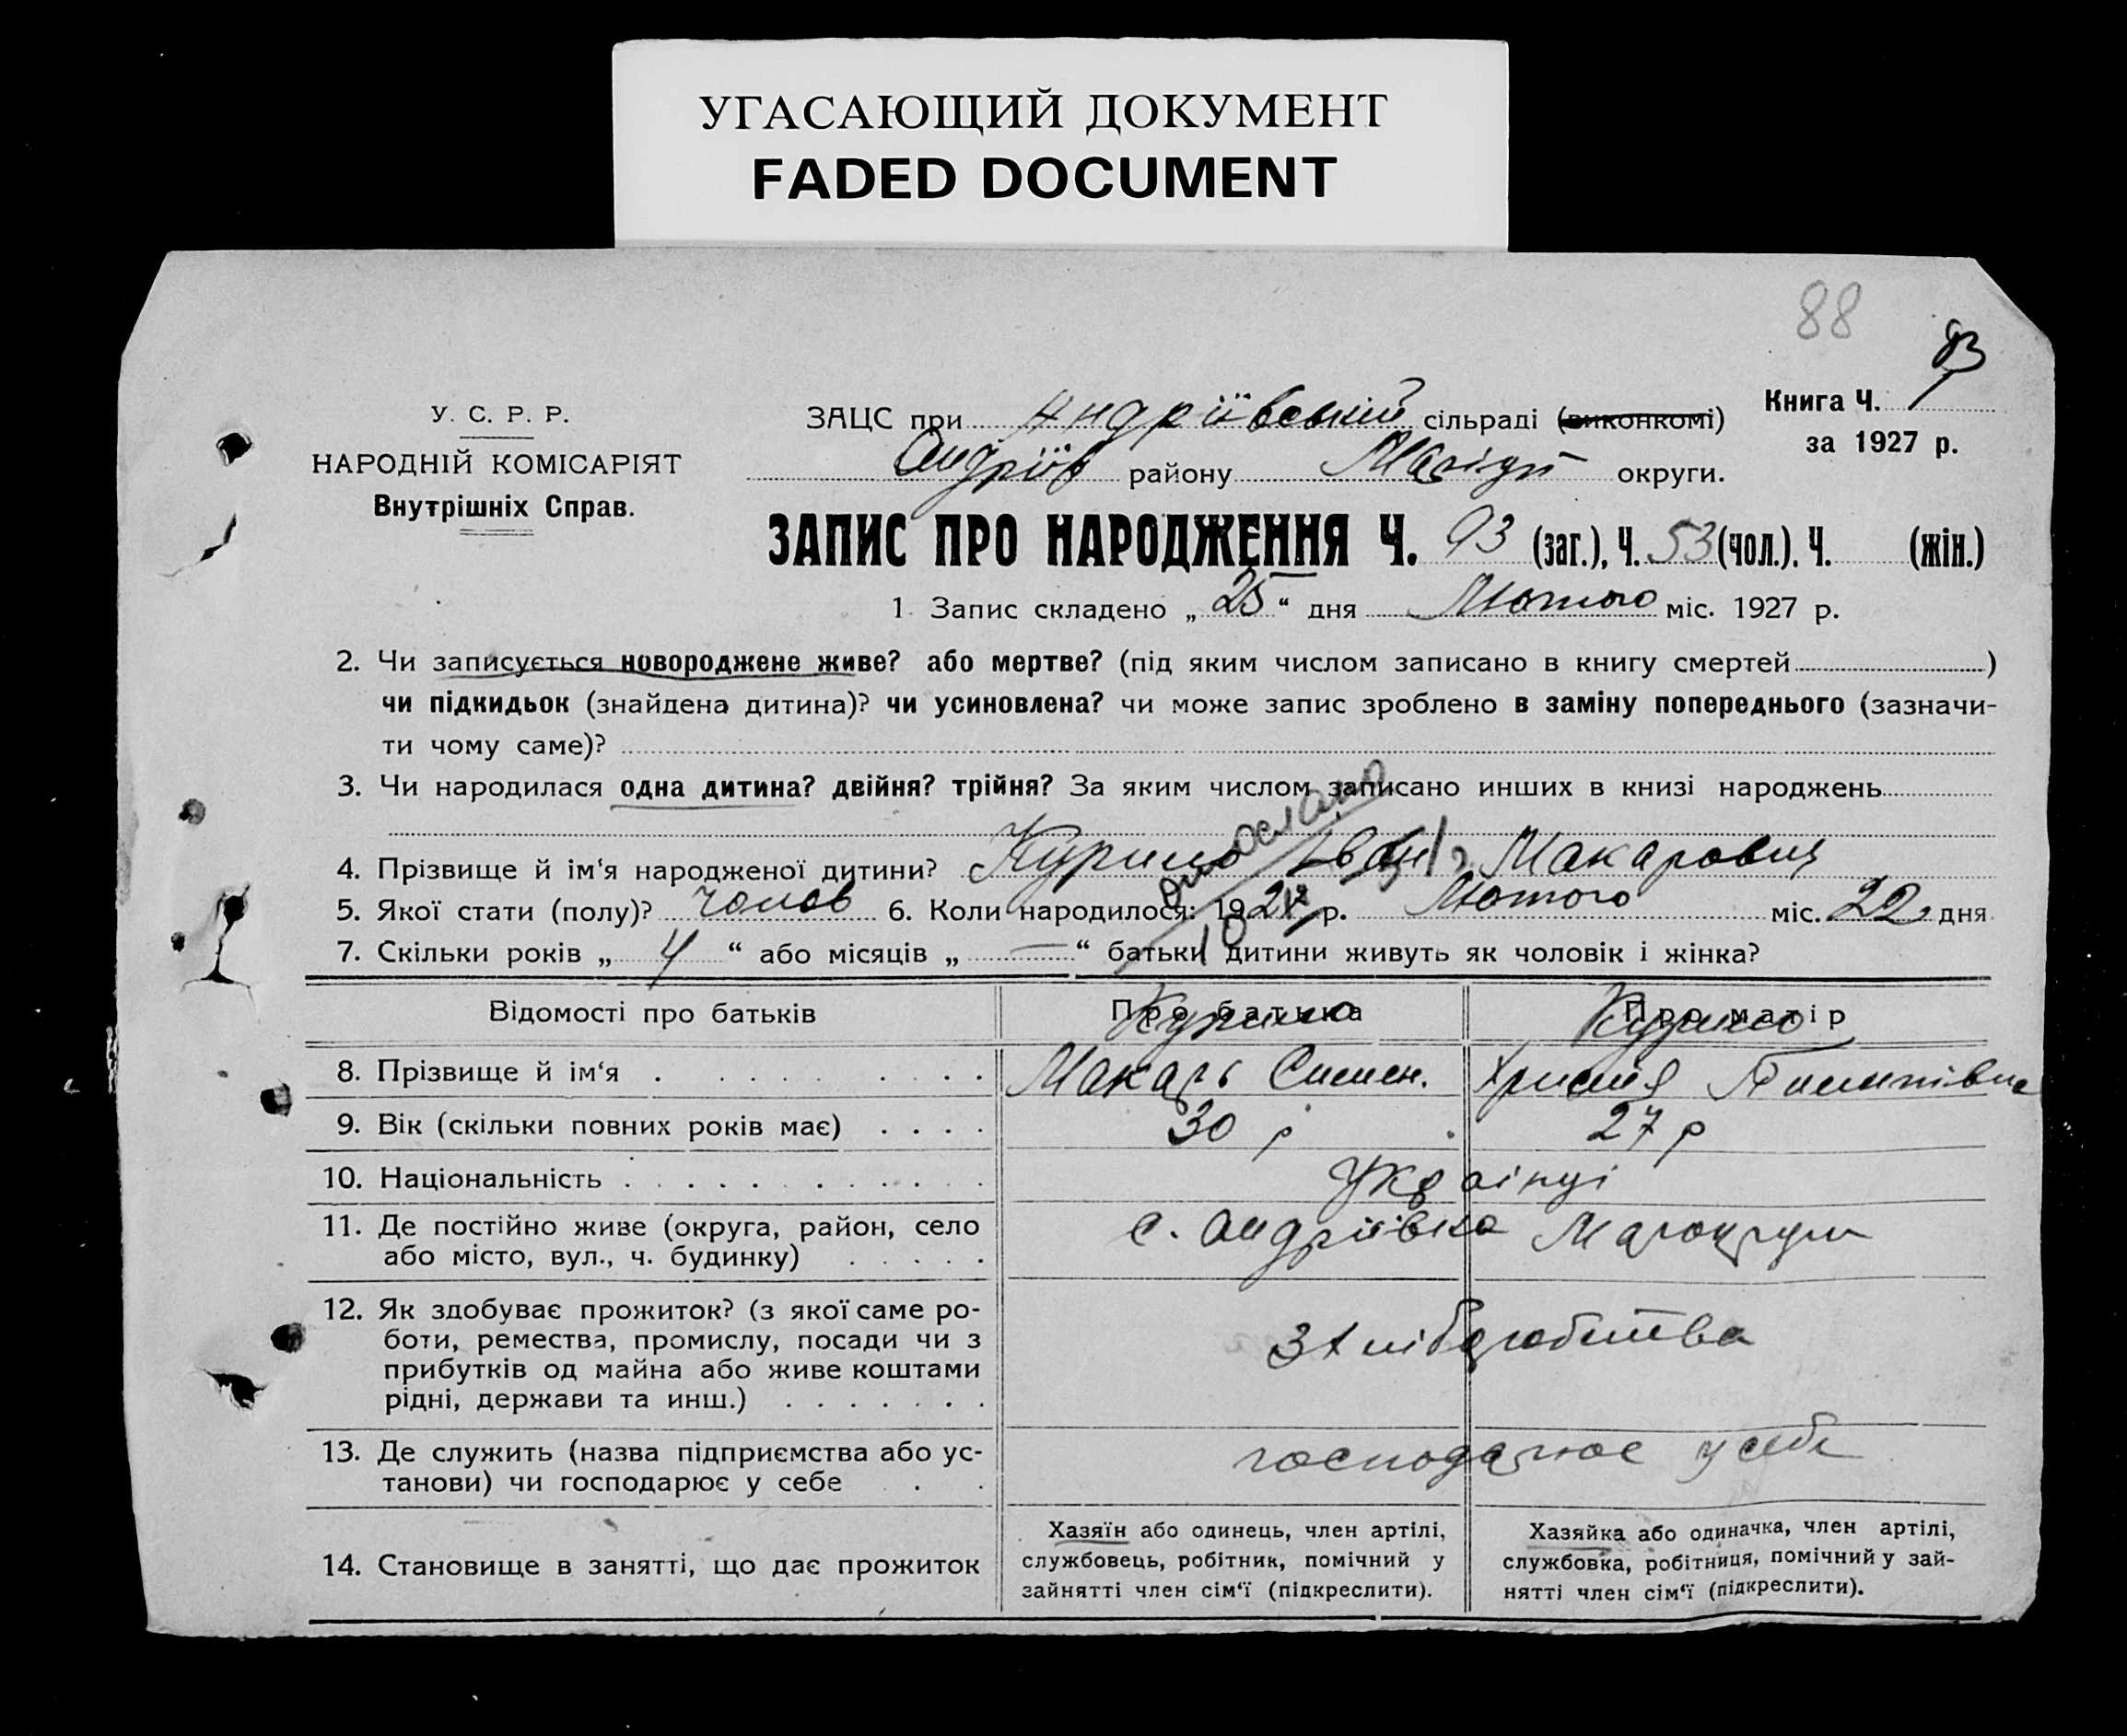 УГАСАЮЩИЙ ДОКУМЕНТ
FADED DOCUMENT
88
93
У. С. Р. Р.
НАРОДНІЙ КОМІСАРІЯТ
Внутрішніх Справ.
ЗАЦС при Андріївській сільраді (виконкомі)
Андріїв району округи.
Книга Ч.
за 1927 р.
ЗАПИС ПРО НАРОДЖЕННЯ Ч. 93 (заг.), Ч. 53 (чол.). Ч. (жін.)
1. Запис складено „25“ дня Лютого міс. 1927 р.
2. Чи записується новороджене живе? або мертве? (під яким числом записано в книгу смертей )
чи підкидьок (знайдена дитина)? чи усиновлена? чи може запис зроблено в заміну попереднього (зазначи-
ти чому саме)?
3. Чи народилася одна дитина? двійня? трійня? За яким числом записано инших в книзі народжень
4. Прізвище й ім‘я народженої дитини? Курило Іван Макарович
5. Якої стати (полу)? чолов 6. Коли народилося: 1927 р. Лютого міс. 22 дня
7. Скільки років „ 4 “ або місяців „ — “ батьки дитини живуть як чоловік і жінка?
Відомості про батьків
Про батька
Про матір
Курило
Курило
8. Прізвище й ім‘я . . . . . . . . .
Макарь Симен.
Христя
9. Вік (скільки повних років має) . . . .
30 р
27 р
10. Національність . . . . . . . . . . .
Українці
11. Де постійно живе (округа, район, село
або місто, вул., ч. будинку) . . . . .
с. Андріївка
12. Як здобуває прожиток? (з якої саме ро-
боти, ремества, промислу, посади чи з
прибутків од майна або живе коштами
рідні, держави та инш.) . . . . . . .
З хліборобства
13. Де служить (назва підприємства або ус-
танови) чи господарює у себе . .
господарює у себе
14. Становище в занятті, що дає прожиток
Хазяїн або одинець, член артілі,
службовець, робітник, помічний у
зайнятті член сім‘ї (підкреслити).
Хазяйка або одиначка, член артілі,
службовка, робітниця, помічний у зай-
нятті член сім‘ї (підкреслити).